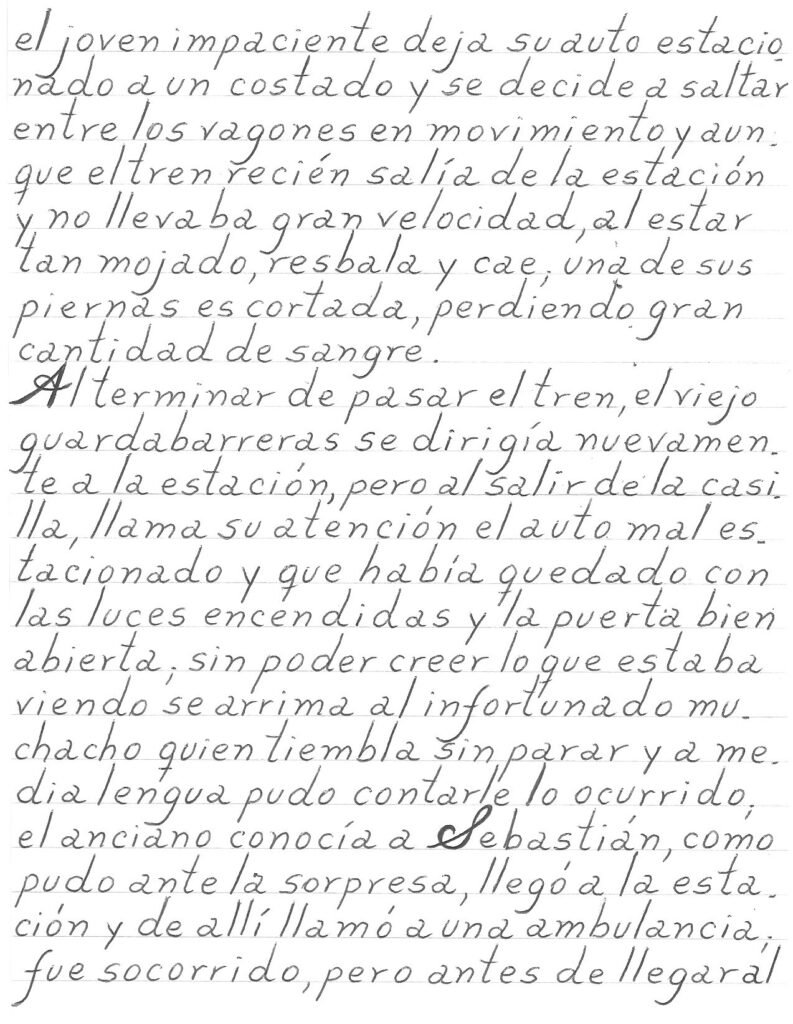 el joven impaciente deja su auto estacio_
nado a un costado y se decide a saltar
entre los vagones en movimiento y aun_
que el tren recién salía de la estación
y no llevaba gran velocidad, al estar
tan mojado, resbala y cae; una de sus
piernas es cortada, perdiendo gran
cantidad de sangre.
Al terminar de pasar el tren, el viejo
guardabarreras se dirigía nuevamen_
te a la estación, pero al salir de la casi_
lla, llama su atención el auto mal es_
tacionado y que había quedado con
las luces encendidas y la puerta bien
abierta; sin poder creer lo que estaba
viendo se arrima al infortunado mu_
chacho quien tiembla sin parar y a me_
dia lengua pudo contarle lo ocurrido;
el anciano conocía a Sebastián, como
pudo ante la sorpresa, llegó a la esta_
ción y de allí llamó a una ambulancia;
fue socorrido, pero antes de llegar al